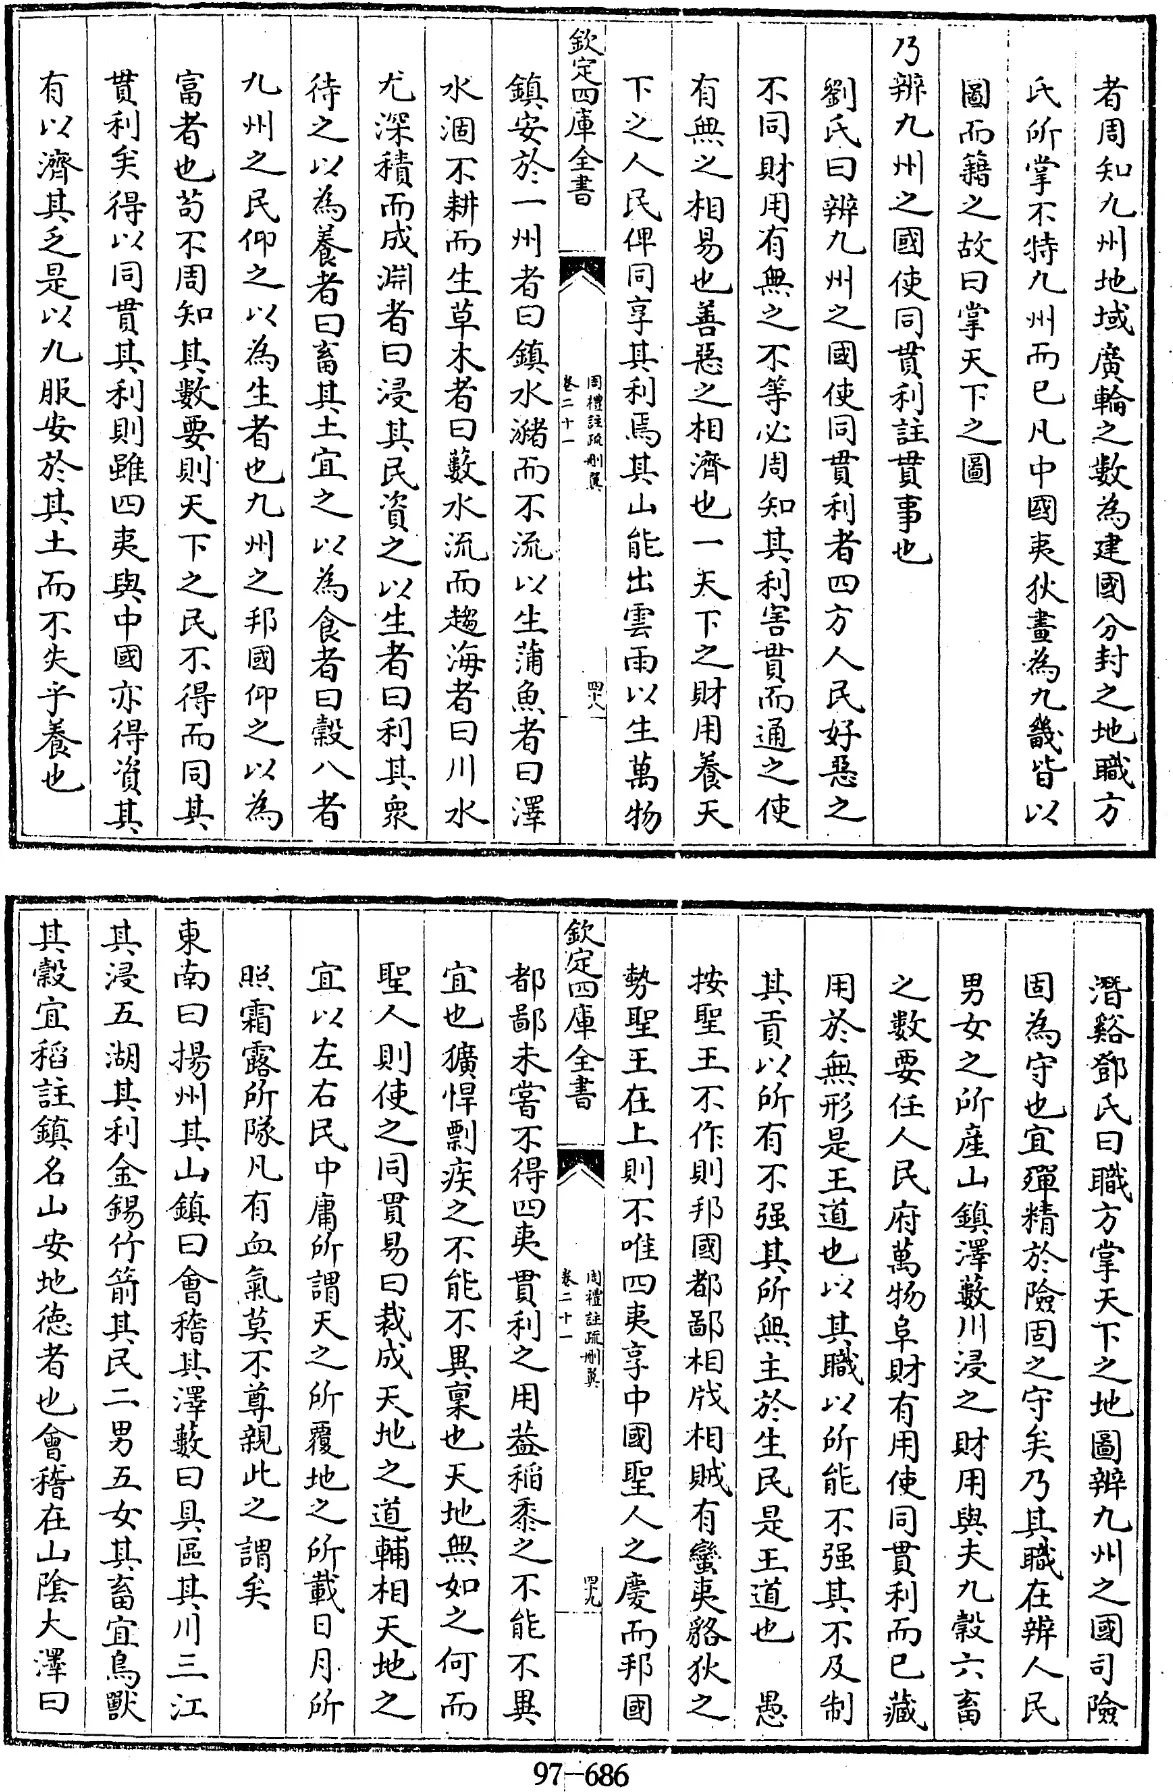 者周知九州地域廣輪之數為建國分封之地職方
氏所掌不特九州而已凡中國夷狄畫為九畿皆以
圖而籍之故曰掌天下之圖
乃辨九州之國使同貫利註貫事也
劉氏曰辨九州之國使同貫利者四方人民好惡之
不同財用有無之不等必周知其利害貫而通之使
有無之相易也善惡之相濟也一天下之財用養天
下之人民俾同享其利焉其山能出雲雨以生萬物
欽定四庫全書
周禮註疏刪翼
卷二十一
四八
鎮安於一州者曰鎮水瀦而不流以生蒲魚者曰澤
水涸不耕而生草木者曰藪水流而趨海者曰川水
尤深積而成淵者曰浸其民資之以生者曰利其衆
待之以為養者曰畜其土宜之以為食者曰穀八者
九州之民仰之以為生者也九州之邦國仰之以為
富者也茍不周知其數要則天下之民不得而同其
貫利矣得以同貫其利則雖四夷與中國亦得資其
有以濟其乏是以九服安於其土而不失乎養也
潛谿鄧氏曰職方掌天下之地圖辨九州之國司險
固為守也宜殫精於險固之守矣乃其職在辨人民
男女之所產山鎮澤藪川浸之財用與夫九穀六畜
之數要任人民府萬物阜財有用使同貫利而已藏
用於無形是王道也以其職以所能不强其不及制
其貢以所有不强其所無主於生民是王道也　愚
按聖王不作則邦國都鄙相戕相賊有蠻夷貉狄之
勢聖王在上則不唯四夷享中國聖人之慶而邦國
欽定四庫全書
周禮註疏刪翼
卷二十一
四九
都鄙未嘗不得四夷貫利之用葢稻黍之不能不異
宜也獷悍剽疾之不能不異稟也天地無如之何而
聖人則使之同貫易曰裁成天地之道輔相天地之
宜以左右民中庸所謂天之所覆地之所載日月所
照霜露所隊凡有血氣莫不尊親此之謂矣
東南曰揚州其山鎮曰會稽其澤藪曰具區其川三江
其浸五湖其利金錫竹箭其民二男五女其畜宜鳥獸
其穀宜稻註鎮名山安地德者也會稽在山陰大澤曰
97-686